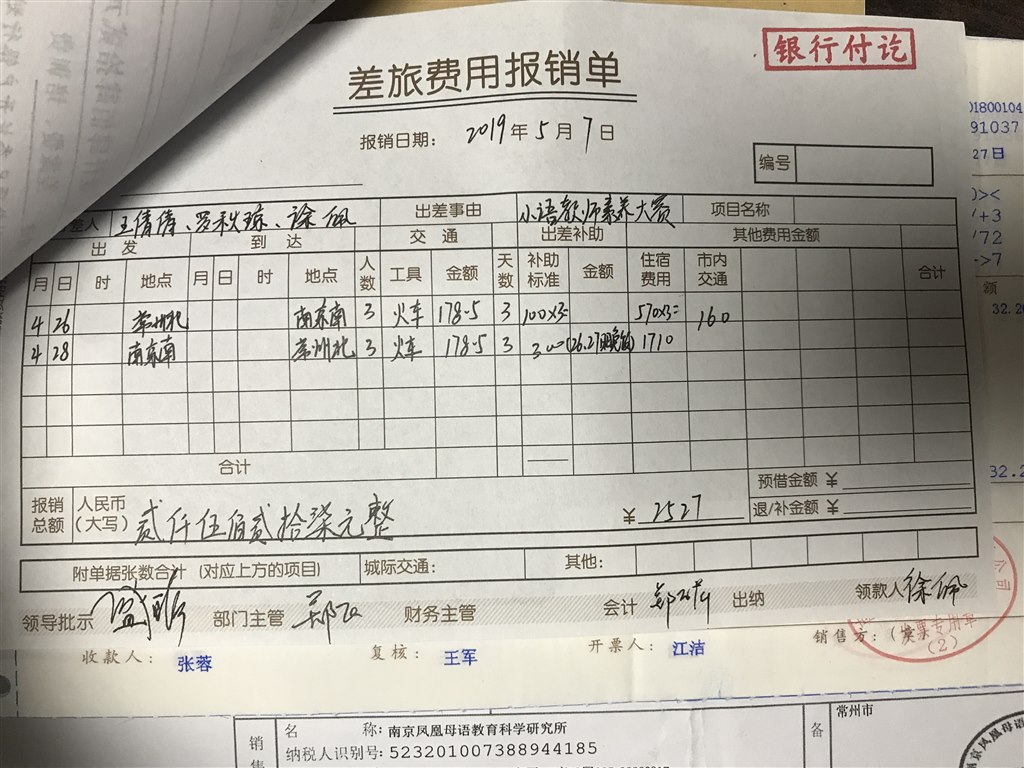 银行付讫
差旅费用报销单
报销日期： 2019年5月7日
编号
差人 王倩倩、罗秋琼、徐佩 出差事由 小语教师素养大赛 项目名称
出发 到达 交通 出差补助 其他费用金额
月 日 时 地点 月 日 时 地点 人数 工具 金额 天数 补助标准 金额 住宿费用 市内交通 合计
4 26 常州北 南京南 3 火车 178.5 3 100×3= 570×3= 160
4 28 南京南 常州北 3 火车 178.5 3 300 (26.27日晚宿) 1710
合计
预借金额 ¥
报销总额 人民币（大写） 贰仟伍佰贰拾柒元整 ¥ 2527 退/补金额 ¥
附单据张数合计（对应上方的项目） 城际交通： 其他：
领导批示 部门主管 财务主管 会计 出纳 领款人 徐佩
收款人： 张蓉 复核： 王军 开票人： 江洁 销售方：（
发票专用章
(2)
公司
01800104
91037
27日
><
/+3
/72
->7
额
32.2
32.2
销售
名 称：南京凤凰母语教育科学研究所
纳税人识别号：523201007388944185
备
常州市
南京凤凰母语